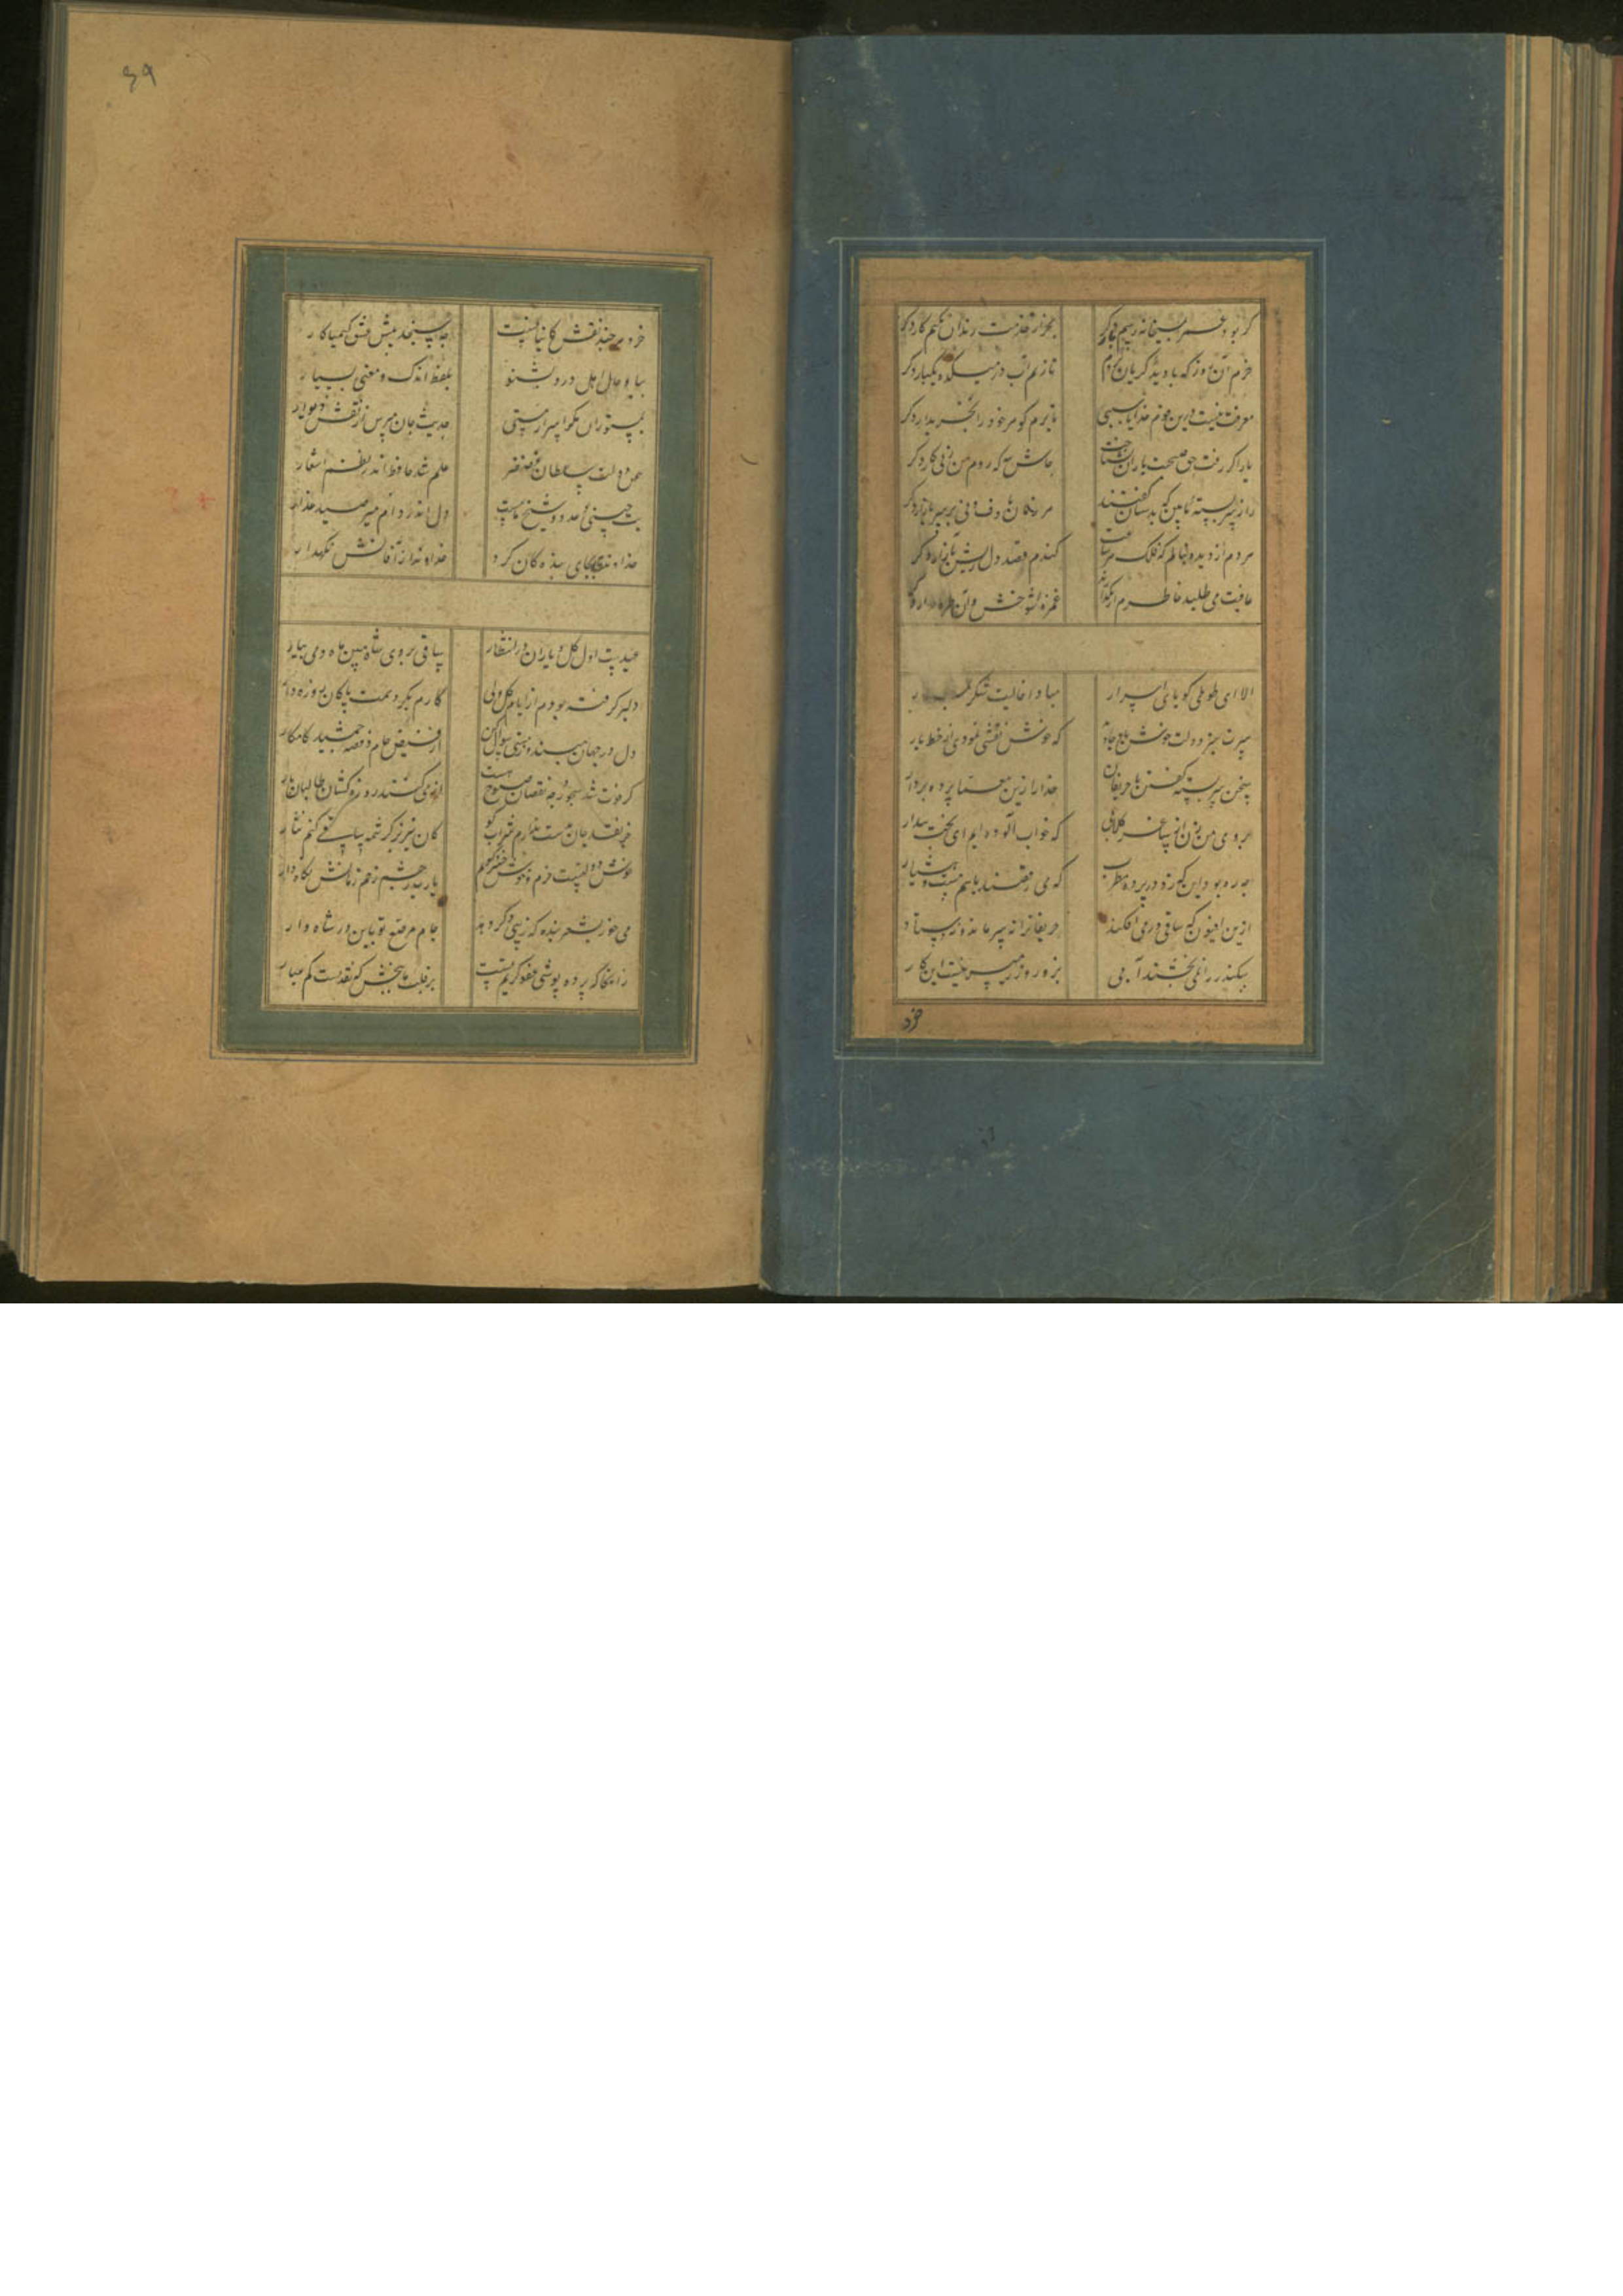 گر بود عمر بمیخانه رسم بار دگر
بجز از خدمت رندان نکنم کار دگر
خرم آن روز که با دیده گریان بروم
تا زنم آب در میکده یکبار دگر
معرفت نیست درین قوم خدایا سببی
تا برم گوهر خود را بخریدار دگر
یار اگر رفت حق صحبت یاران نشناخت
حاش لله که روم من ز پی کار دگر
راز سربسته ما بین که بدستان گفتند
هر زمان با دف و نی بر سر بازار دگر
هر دم از دیده بنالم که فلک هر ساعت
کندم قصد دل ریش بآزار دگر
عافیت می طلبد خاطرم ار بگذارند
غمزه شوخش و آن طره طرار دگر
الا ای طوطی گویای اسرار
مبادا خالیت شکر ز منقار
سرت سبز و دلت خوش باد جاوید
که خوش نقشی نمودی از خط یار
سخن سربسته گفتن با حریفان
خدا را زین معما پرده بردار
بروی من زن از ساغر گلابی
که خواب آلوده ایم ای بخت بیدار
چه ره بود این که زد در پرده مطرب
که می رقصند با هم مست و هشیار
ازین افیون که ساقی در می افکند
حریفانرا نه سر ماند و نه دستار
سکندر را نمی بخشند آبی
بزور و زر میسر نیست این کار
خرد
۶۹
خرد هر چند نقش کاینات نیست
چه سنجد پیش عشق کیمیا کار
بیا و حال اهل درد بشنو
بلفظ اندک و معنی بسیار
بمستوران مگو اسرار مستی
حدیث جان مپرس از نقش دیوار
بیمن دولت سلطان
علم شد حافظ اندر نظم اشعار
دل اندر دام
خداوندی بجای بنده گان کرد
خداوندا ز آفاتش نگهدار
عیدست اول گل و یاران در انتظار
ساقی بروی شاه ببین ماه و می بیار
دل بر گرفته بودم از ایام گل ولی
کاری بکرد همت پاکان روزه دار
دل در جهان مبند و ز مستی سوال کن
از فیض جام و قصه جمشید کامکار
گر فوت شد سحور چه نقصان صبوح هست
از می کنند روزه گشا طالبان یار
جز نقد جان بدست ندارم شراب کو
کان نیز بر کرشمه ساقی کنم نثار
خوش دولتیست خرم و خوش خسرو کریم
یا رب ز چشم زخم زمانش نگاه دار
می خور بشعر بنده که زیبی دگر دهد
جام مرصع تو باین در شاه وار
زانجا که پرده پوشی عفو کریم تست
بر قلب ما ببخش که نقدیست کم عیار